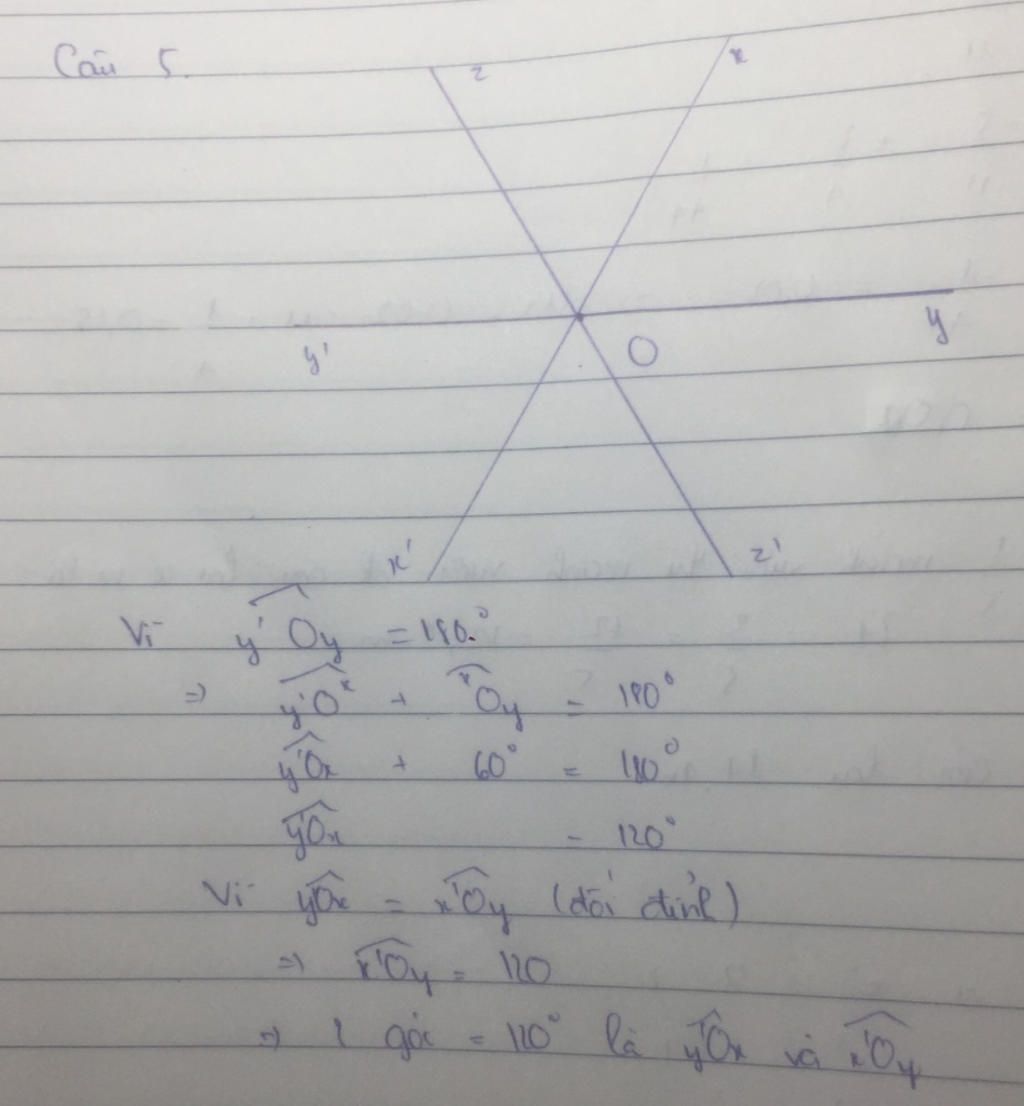 Câu 5.
z x
y' O y
x' z'
Vì y'Oy = 180°
⇒ y'Ox + xOy = 180°
y'Ox + 60° = 180°
y'Ox = 120°
Vì y'Ox = x'Oy (đối đỉnh)
⇒ x'Oy = 120
⇒ 2 góc = 120° là y'Ox và x'Oy